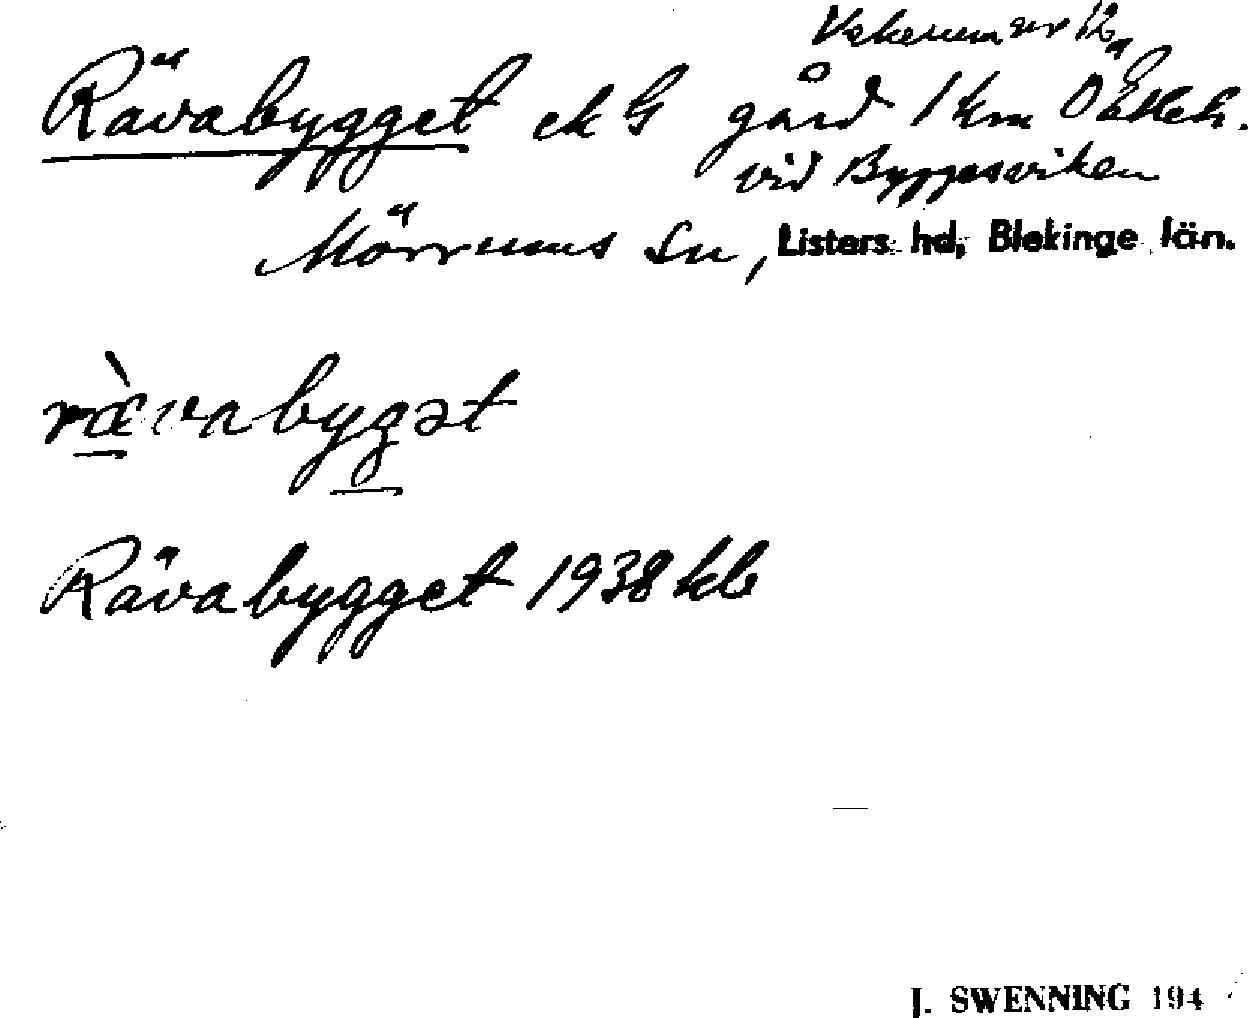 Vekerum nr 12
Rävabygget ek G gård 1 km Ö
vid Byggesviken
Mörrums sn, Listers hd, Blekinge län.
ràvabygət
Rävabygget 1938 kb
J. SWENNING 194